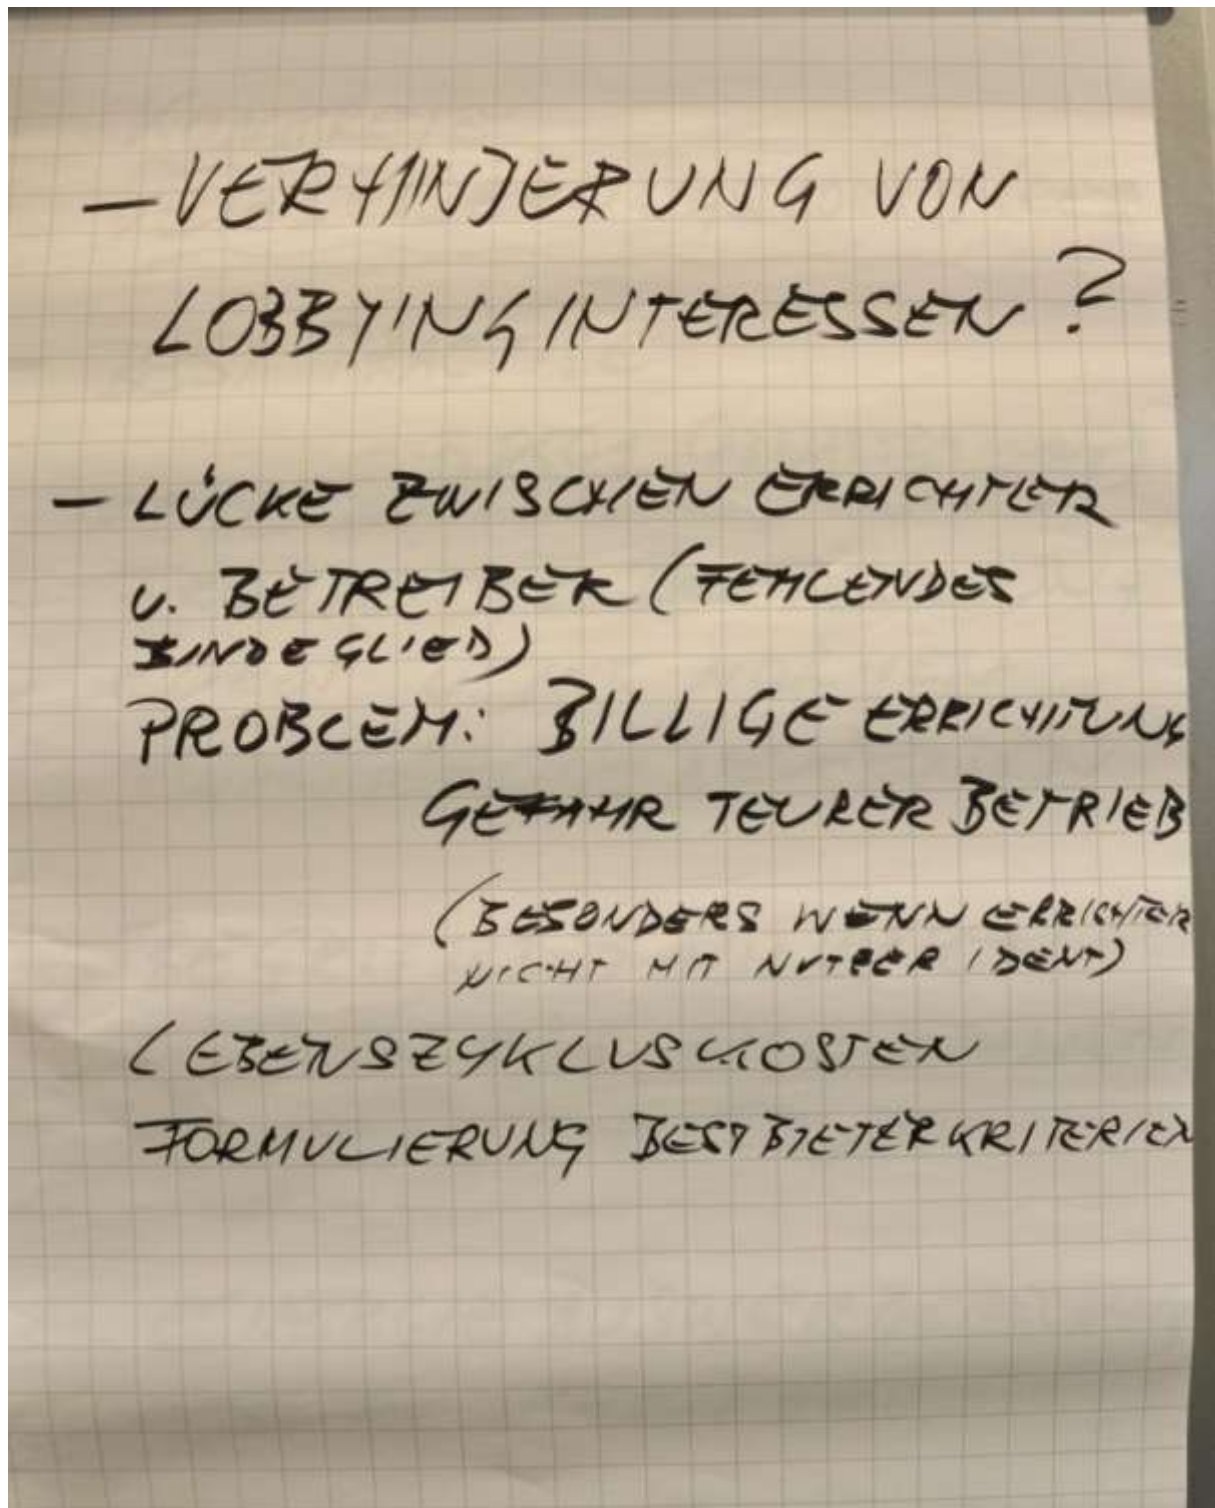 — VERHINDERUNG VON
LOBBYINGINTERESSEN?
— LÜCKE ZWISCHEN ERRICHTER
U. BETREIBER (FEHLENDES
BINDEGLIED)
PROBLEM: BILLIGE ERRICHTUNG
GEFAHR TEURER BETRIEB
(BESONDERS WENN ERRICHTER
NICHT MIT NUTZER IDENT)
LEBENSZYKLUSKOSTEN
FORMULIERUNG BESTBIETERKRITERIEN